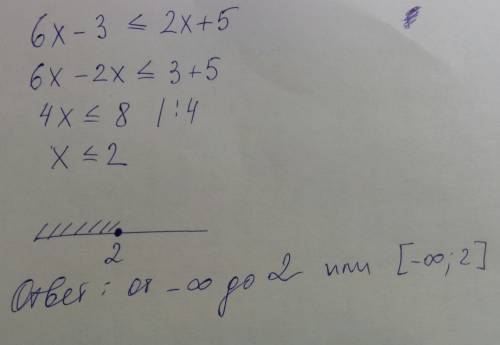 6x - 3 ≤ 2x + 5
6x - 2x ≤ 3 + 5
4x ≤ 8 | : 4
x ≤ 2
2
Ответ: от -∞ до 2 или [-∞; 2]